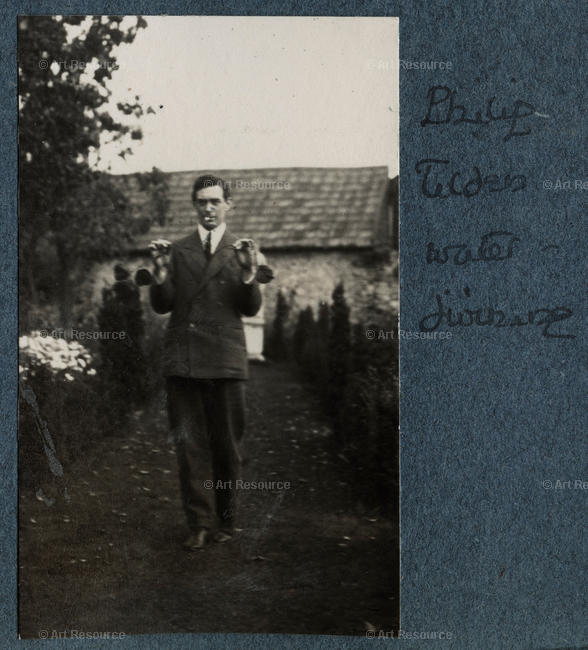 Philip
Tilden
water-
divining
© Art Resource
© Art Resource
© Art Resource
© Art Resource
© Art Resource
© Art Resource
© Art Resource
© Art Resource
© Art Resource
© Art Resource